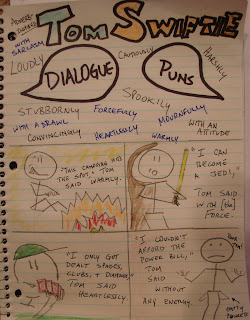 ADVERB
WITH SARCASM
TOM SWIFTIE
LOUDLY
CAUTIOUSLY
HARSHLY
DIALOGUE
PUNS
SPOOKILY
STUBBORNLY
FORCEFULLY
MOURNFULLY
WITH A DRAWL
WITH AN ATTITUDE
CONVINCINGLY
HEARTLESSLY
WARMLY
"THIS CAMPFIRE HITS
THE SPOT," TOM
SAID WARMLY.
"I CAN
BECOME A
JEDI,"
TOM SAID
WITH [the]
FORCE.
"I ONLY GOT
DEALT SPADES,
CLUBS, & DIAMONDS,"
TOM SAID
HEARTLESSLY
"I COULDN'T
AFFORD THE
POWER BILL,"
TOM
SAID
WITHOUT
ANY ENERGY.
EMPTY
POCKETS